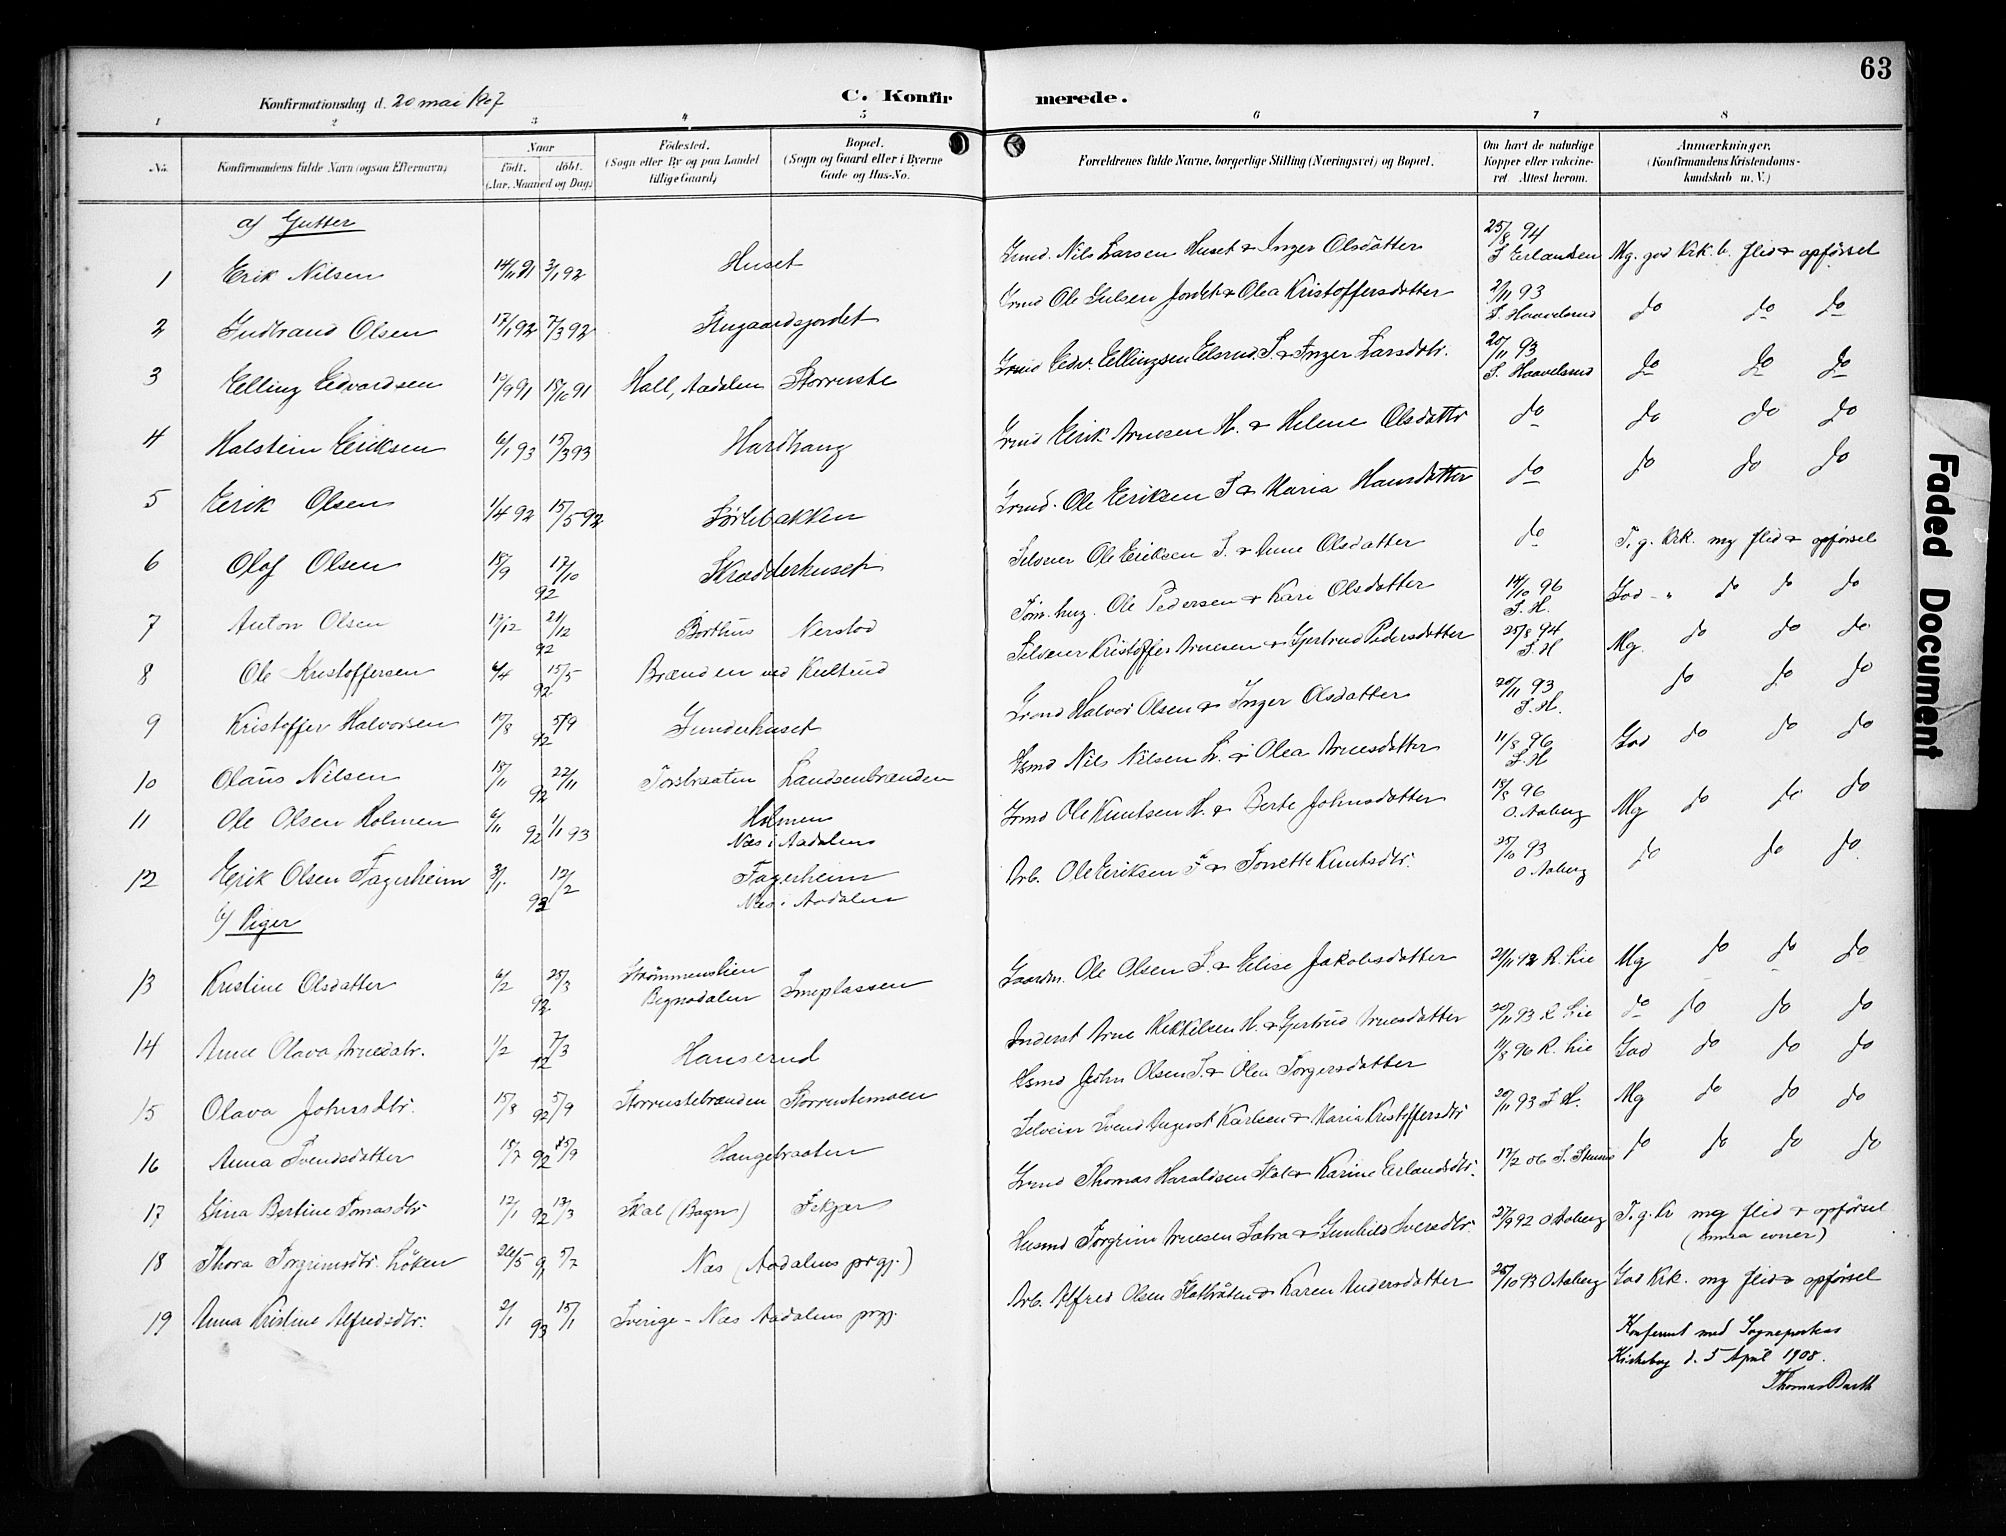 63
Konfirmationsdag d. 20 mai 1907
C. Konfirmerede.
1 2 3 4 5 6 7 8
No.
Konfirmandens fulde Navn (ogsaa Efternavn)
Naar født. døbt. (Aar, Maaned og Dag)
Födested. (Sogn eller By og paa Landet tillige Gaard)
Bopæl. (Sogn og Gaard eller i Byerne Gade og Hus-No.
Forældrenes fulde Navne, borgerlige Stilling (Næringsvei) og Bopæl.
Om havt de naturlige Kopper eller vaccineret. Attest herom.
Anmærkninger. (Konfirmandens Kristendomskundskab m. V.)
a) Gutter
1 Erik Nilsen 14/11 91 3/1 92 Huset Grmd. Nils Larsen Huset & Inger Olsdatter 25/8 94 S Erlandsen Mg. god Krk. b. flid & opførsel
2 Gudbrand Olsen 17/1 92 7/3 92 Grmd Ole Gulsen Jordet & Olea Kristoffersdatter 2/11 93 S. Haavelsrud do do do
3 Elling Edvardsen 12/9 91 18/10 91 Hall, Aadalen Storruste Grmd Edv. Ellingsen Elsrud S. & Inger Larsdtr. 20/11 93 S. Haavelsrud do do do
4 Halstein Eriksen 6/1 93 15/3 93 Hardhaug Grmd Erik Arnesen H. & Helene Olsdattr do do do do
5 Erik Olsen 1/4 92 15/5 92 Sørlibakken Grmd. Ole Eriksen S & Maria Hansdatter do do do do
6 Olof Olsen 18/9 17/10 92 Skrædderhuset Selveier Ole Eriksen S. & Anne Olsdatter do T. g. Krk. mg flid & opførsel
7 Anton Olsen 17/12 21/12 92 Børthus Nerstad Tøm.hug. Ole Pedersen & Kari Olsdatter 14/10 96 S. H. God - " do do do
8 Ole Kristoffersen 4/4 15/5 92 Brænden ved Kultrud Selveier Kristoffer Arnesen & Gjertrud Pedersdatter 25/8 94 S. H Mg. do do do
9 Kristoffer Halvorsen 15/8 5/9 92 Gunderhuset Grmd Halvor Olsen & Inger Olsdatter 20/11 93 S. H. do do do
10 Olaus Nilsen 18/11 22/11 92 Torsbraaten Landsenbrænden Hsmd Nils Nilsen L. & Olea Arnesdatter 11/8 96 S. H God do do do
11 Ole Olsen Holmen 6/11 92 1/1 93 Holmen Næs i Aadalens Grmd Ole Knutsen H. & Berte Johnsdatter 18/8 96 O. Aaberg Mg do do do
12 Erik Olsen Fagerheim 3/1 12/2 93 Fagerheim Næs i Aadalen Arb. Ole Eriksen F & Tonette Knutsdtr. 25/10 93 O. Aaberg do do do
b) Piger
13 Kristine Olsdatter 6/2 25/3 92 Strømmenslien Begnadalen Sneplassen Gaardm. Ole Olsen S. & Elise Jakobsdatter 21/11 92 R. Lie Mg do do do
14 Anne Olava Arnesdtr. 1/2 7/3 92 Hanserud Inderst Arne Mikkelsen H. & Gjertrud Arnesdatter 20/11 93 R Lie do do do do
15 Olava Johnsdtr. 15/8 92 5/9 Storrustebrænden Storrustemoen Hsmd John Olsen S. & Olea Torgersdatter 11/8 96 R. Lie God do do do
16 Anna Svendsdatter 18/7 92 25/9 Haugebraaten Selveier Svend August Karlsen & Maria Kristoffersdtr 20/11 93 S H. Mg do do do
17 Gina Bertine Tomasdtr 12/1 92 13/3 Skal (Bagn) Fekjær Grmd Thomas Haraldsen Skal & Karine Erlandsdtr. 17/2 06 do do do do
18 Thora Torgrimsdtr. Løken 26/5 91 5/7 Næs (Aadalens prgj.) Husmd Torgrim Arnesen Sætra & Gunhild Iversdtr. 27/9 92 O Aaberg T. g. Kr mg flid & opførsel (smaa evner)
19 Anna Kristine Alfredsdtr. 2/1 93 15/1 Sverige - Næs Aadalens prgj. Arb. Alfred Olsen Flatbråten & Karen Andersdatter 25/10 93 O Aaberg God Krk. mg flid & opførsel
Konferert med Sogneprotokol
Kirkebog d. 5 April 1908.
Thomas Barth
Faded Document